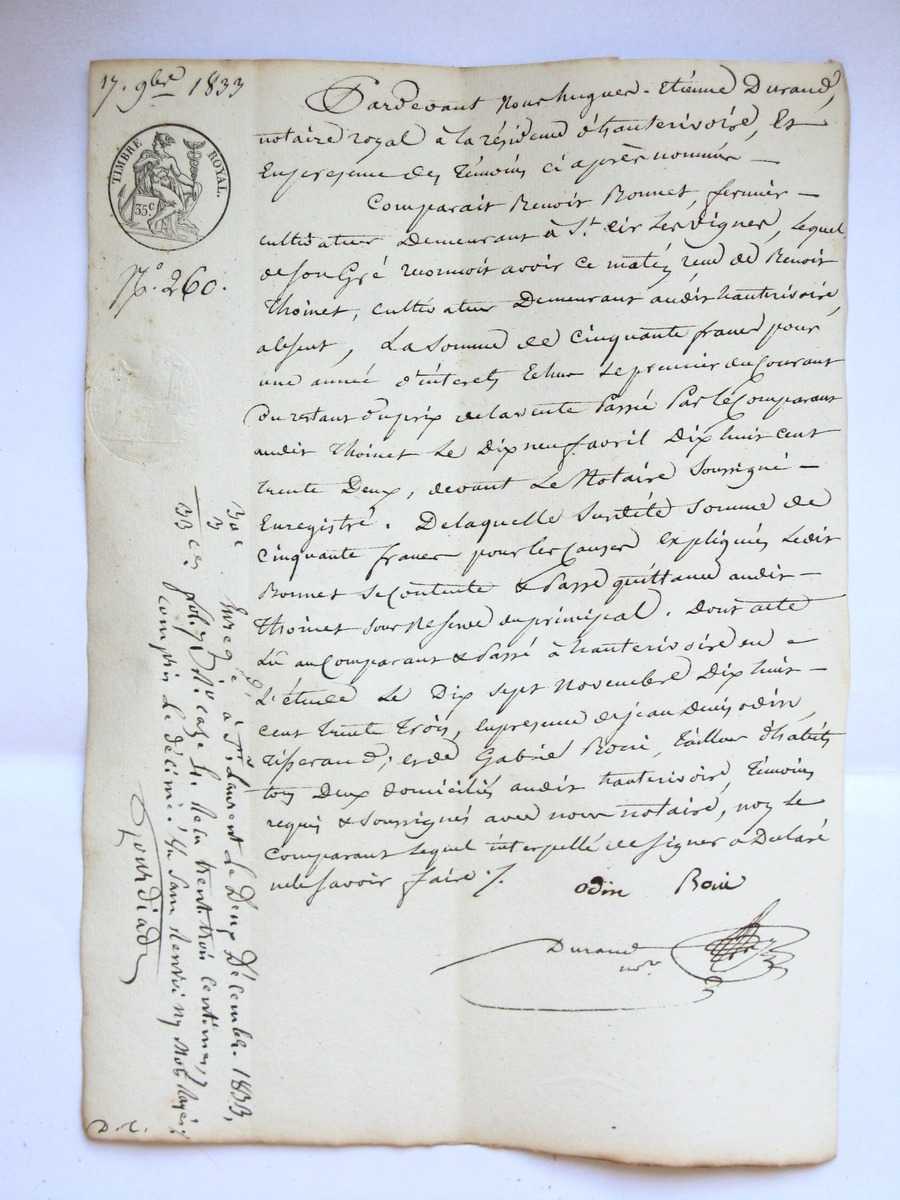 17. 9bre 1833
TIMBRE ROYAL.
35c
N.o 260.
Pardevant Nous hugues-Etienne Durand,
notaire royal à la résidence d'hauterivoire, Et
En presence des Témoins ci après nommés —
Comparait Benoit Bonnet, fermier —
cultivateur Demeurant à St. cir Les vignes, Lequel
de son Gré reconnoit avoir ce matin reçu de Benoit
Thoinet, cultivateur Demeurant audit hauterivoire,
absent, La Somme de Cinquante francs pour
une année d'intérets Echus Le premier du Courant
du restant du prix de la vente Passée Par le Comparant
audit Thoinet Le Dix neuf avril Dix huit cent
trente Deux, devant Le Notaire Soussigné —
Enregistré. De laquelle Susdite Somme de
Cinquante francs pour les causes expliquées Ledit
Bonnet se Contente & Passe quittance audit —
Thoinet sous Réserve du principal. Dont acte
Lû au Comparant & Passé à hauterivoire en —
L'étude Le Dix sept Novembre Dix huit —
cent trente trois, En presence de jean Denis odin,
tisserand; et de Gabriel Boui, tailleur d'habits
tous Deux domiciliés audit hauterivoire, Témoins
requis & Soussignés avec nous notaire, non Le
Comparant Lequel interpellé de signer a Déclaré
ne le savoir faire ./.
odin Boui
Durand
nore
30c
3
33 ces
Enregé à St. Laurent Le Deux Décembre 1833,
trente trois centimes,
compris Le décime. Un Sans Renvoi ny Mots Rayés
D. C.